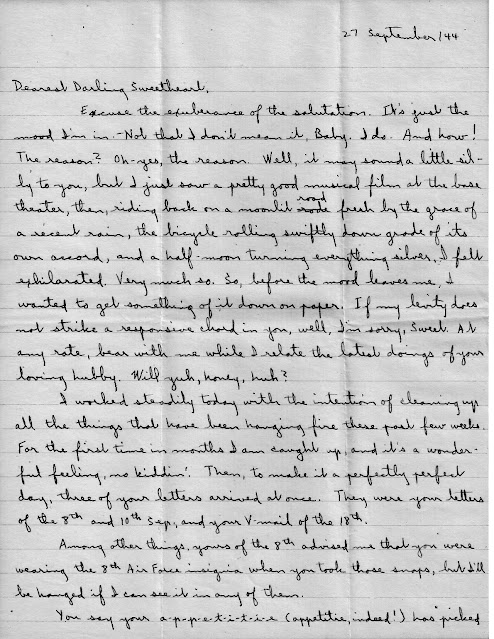 27 September/44
Dearest Darling Sweetheart,
Excuse the exuberance of the salutation. It's just the
mood I'm in. - Not that I don't mean it, Baby. I do. And how!
The reason? Oh-yes, the reason. Well, it may sound a little sil-
ly to you, but I just saw a pretty good musical film at the base
theater, then, riding back on a moonlit road fresh by the grace of
a recent rain, the bicycle rolling swiftly down grade of its
own accord, and a half-moon turning everything silver, I felt
exhilarated. Very much so. So, before the mood leaves me, I
wanted to get something of it down on paper. If my levity does
not strike a responsive chord in you, well, I'm sorry, Sweet. At
any rate, bear with me while I relate the latest doings of your
loving hubby. Will yuh, honey, huh?
I worked steadily today with the intention of cleaning up
all the things that have been hanging fire these past few weeks.
For the first time in months I am caught up, and it's a wonder-
ful feeling, no kiddin'. Then, to make it a perfectly perfect
day, three of your letters arrived at once. They were your letters
of the 8th and 10th Sep, and your V-mail of the 18th.
Among other things, yours of the 8th advised me that you were
wearing the 8th Air Force insignia when you took those snaps, but I'll
be hanged if I can see it in any of them.
You say your a-p-p-e-t-i-t-i-e (appetitie, indeed!) has picked